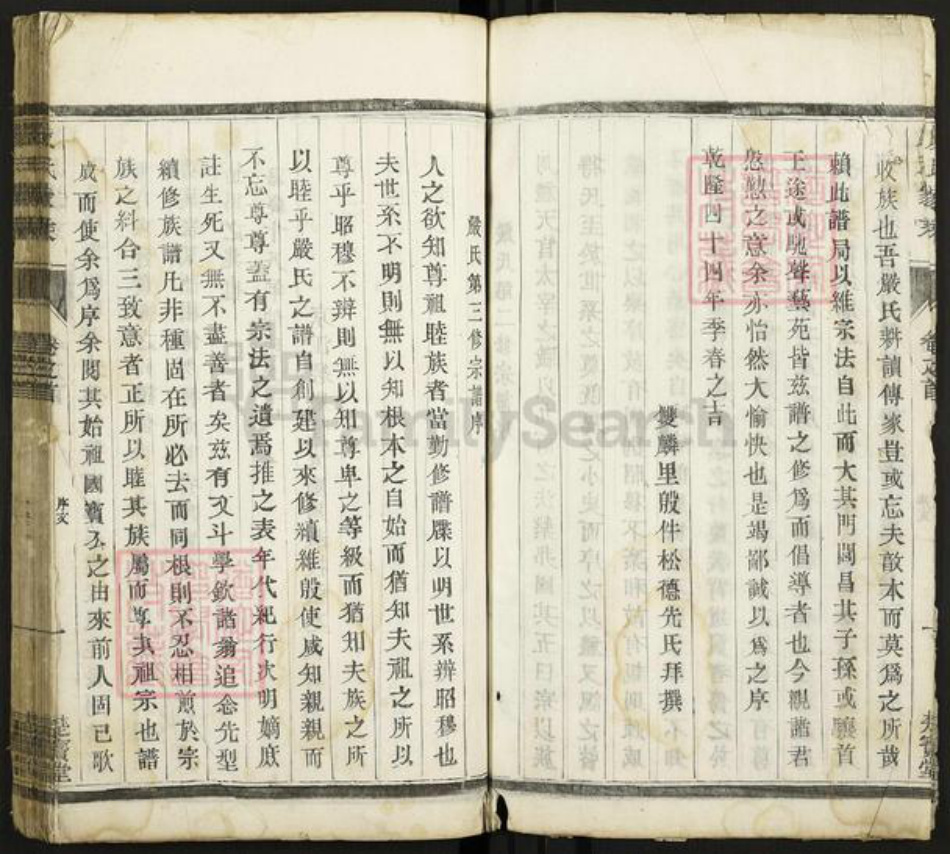 收族也吾嚴氏耕讀傳家豈或忘夫敦本而莫爲之所哉
賴此譜局以維宗法自此而大其門閭昌其子孫或驤首
王途或馳聲藝苑皆兹譜之修爲而倡導者也今親諸君
慇懃之意余亦怡然大愉快也是竭鄙誠以爲之序
乾隆四十四年季春之吉
雙麟里殷件松德光氏拜撰
嚴氏第三修宗譜序
人之欲知尊祖睦族者當勤修譜牒以明世系辨昭穆也
夫世系不明則無以知根本之自始而猶知夫祖之所以
尊乎昭穆不辨則無以知尊卑之等級而猶知夫族之所
以睦乎嚴氏之譜自創建以來修續維殷使咸知親親而
不忘尊尊蓋有宗法之遺焉推之表年代紀行次明嫡庶
註生死又無不盡善者矣兹有文斗學欽諸翁追念先型
續修族譜凡非種固在所必去而同根則不忍相煎於宗
族之糾合三致意者正所以睦其族屬而尊其祖宗也譜
成而使余爲序余閱其始祖國寳公之由來前人固已歌
卷之首
序文
FamilySearch